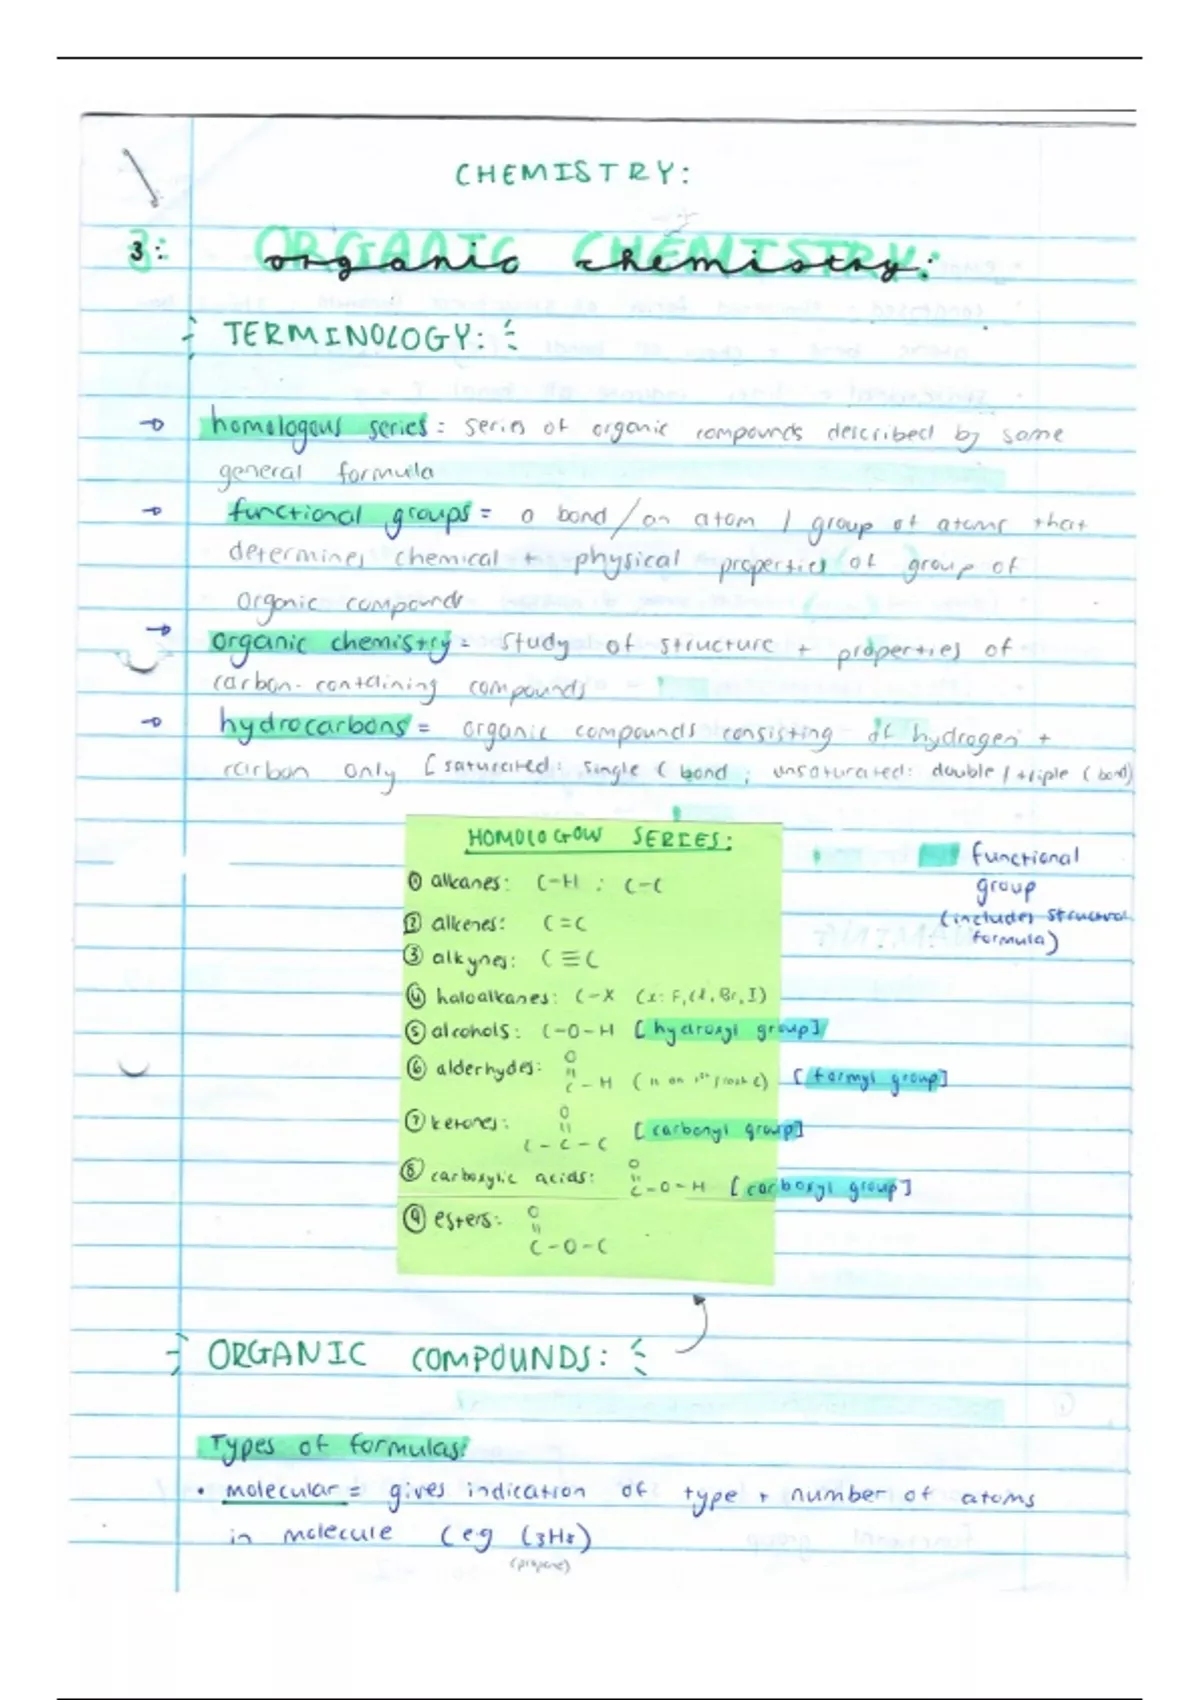 CHEMISTRY:
3: ORGANIC CHEMISTRY:
organic chemistry:
TERMINOLOGY:
→ homologous series: series of organic compounds described by same
general formula
→ functional groups = a bond / an atom / group of atoms that
determines chemical + physical properties of group of
organic compounds
→ organic chemistry = study of structure + properties of
carbon-containing compounds
→ hydrocarbons = organic compounds consisting of hydrogen +
carbon only [saturated: single C bond ; unsaturated: double / triple C bond)
HOMOLOGOW SERIES:
① alkanes: C-H : C-C
② alkenes: C=C
③ alkynes: C≡C
④ haloalkanes: C-X (X: F, Cl, Br, I)
⑤ alcohols: C-O-H [hydroxyl group]
O
⑥ alderhydes: ||
C-H (is on 1st / last C) [formyl group]
O
⑦ ketones: || [carbonyl group]
C-C-C
O
⑧ carboxylic acids: ||
C-O-H [carboxyl group]
⑨ esters: O
||
C-O-C
functional
group
(includes structural
formula)
ORGANIC COMPOUNDS:
Types of formulas:
• molecular = gives indication of type + number of atoms
in molecule (eg C3H8)
(propane)